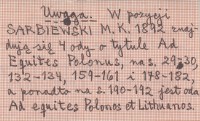 Uwaga. W pozycji
SARBIEWSKI M.K. 1892 znaj
dują się 4 ody o tytule Ad
Equites Polonus, na s. 29-30,
132-134, 159-161 i 178-182,
a ponadto na s. 190-192 jest oda
Ad equites Polonos et Lithuanos.